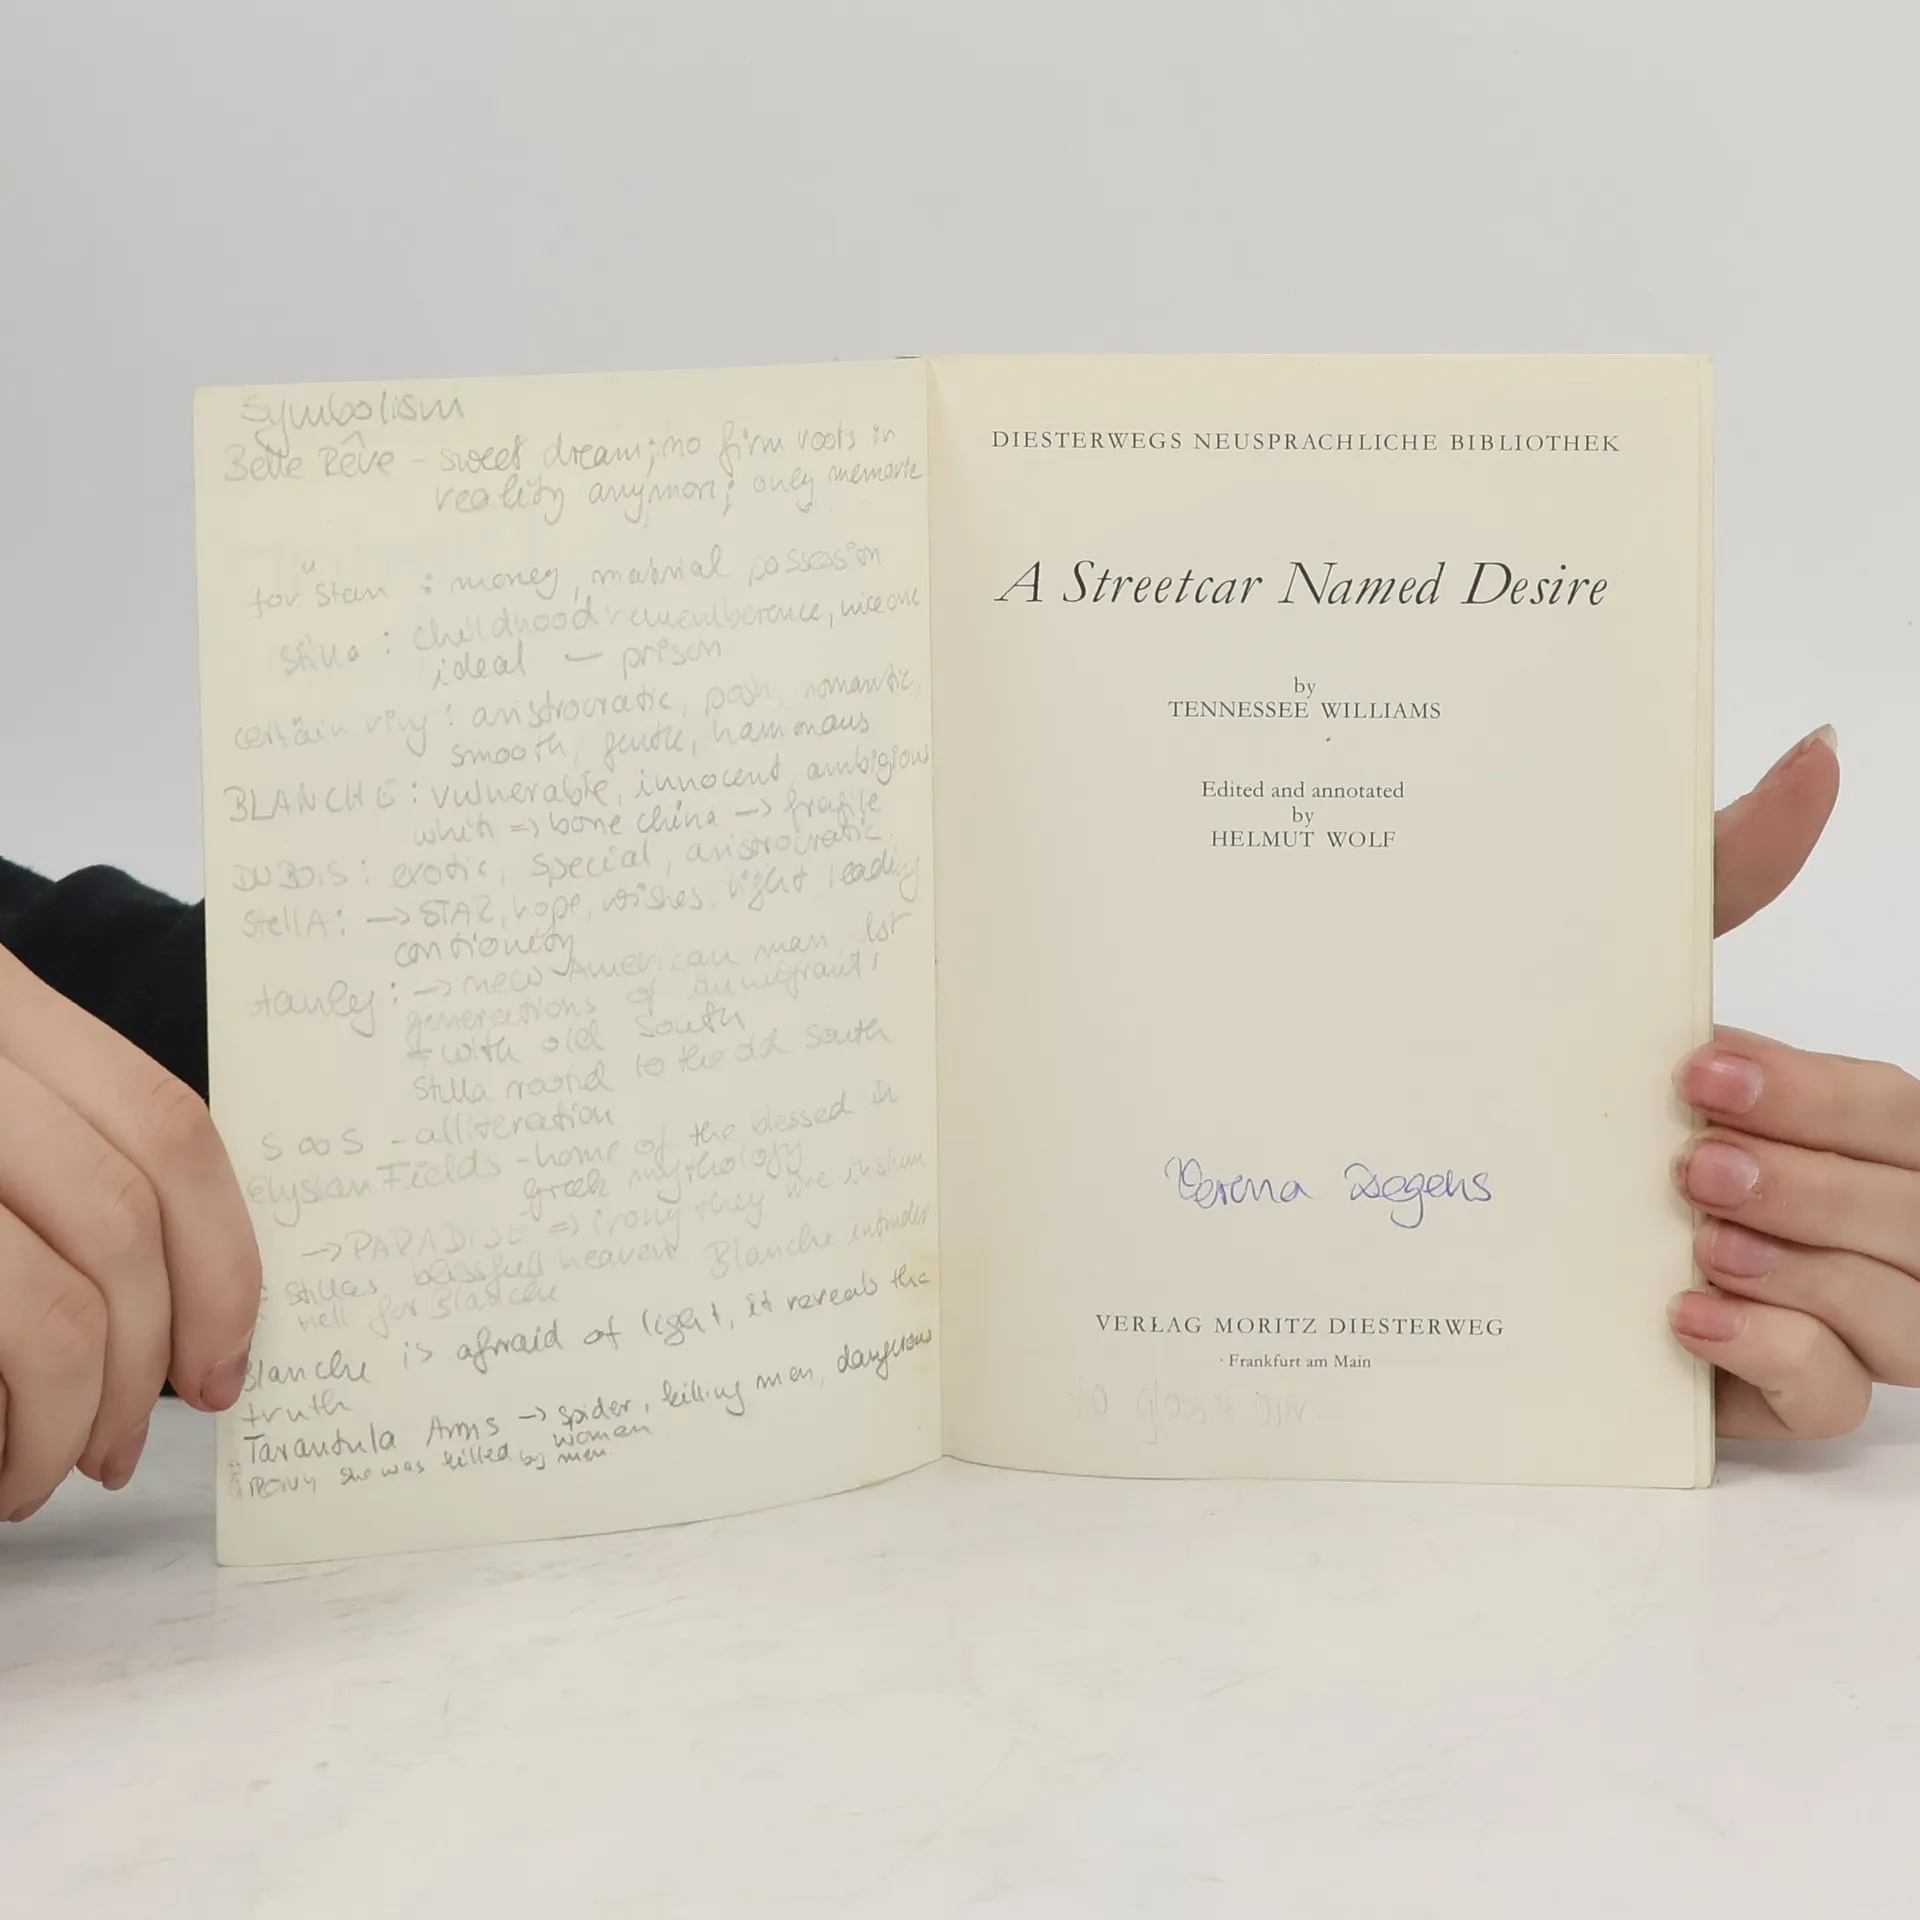 Symbolism
Belle Rêve - sweet dream; no firm roots in
reality anymore; only memorie
for "Stan : money, material possesion
Stella : childhood rememberence, nice one
ideal - prison
certain ring : aristrocratic, posh, romantic,
smooth, gentle,
BLANCHE : vulnerable, innocent, ambigious
white => bone china -> fragile
DUBOIS : exotic, special, aristrocratic.
StellA : -> STAR, hope, wishes, light leading
Stanley : -> new American man 1st
generations of immigrants
with old South
Stella rooted to the old South
S S - alliteration
Elysian Fields - home of the blessed in
greek mythology
-> PARADISE => irony they live in slum
Stellas blissfull heaven Blanche intruder
Hell for Blanche
Blanche is afraid of light, it reveals the
truth
Tarantula Arms -> spider, killing men, dangerous
woman
she was killed by men.
DIESTERWEGS NEUSPRACHLICHE BIBLIOTHEK
A Streetcar Named Desire
by
TENNESSEE WILLIAMS
Edited and annotated
by
HELMUT WOLF
Verena Degens
VERLAG MORITZ DIESTERWEG
Frankfurt am Main